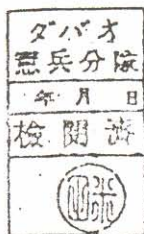 ダバオ
憲兵分隊
年 月 日
検閲済